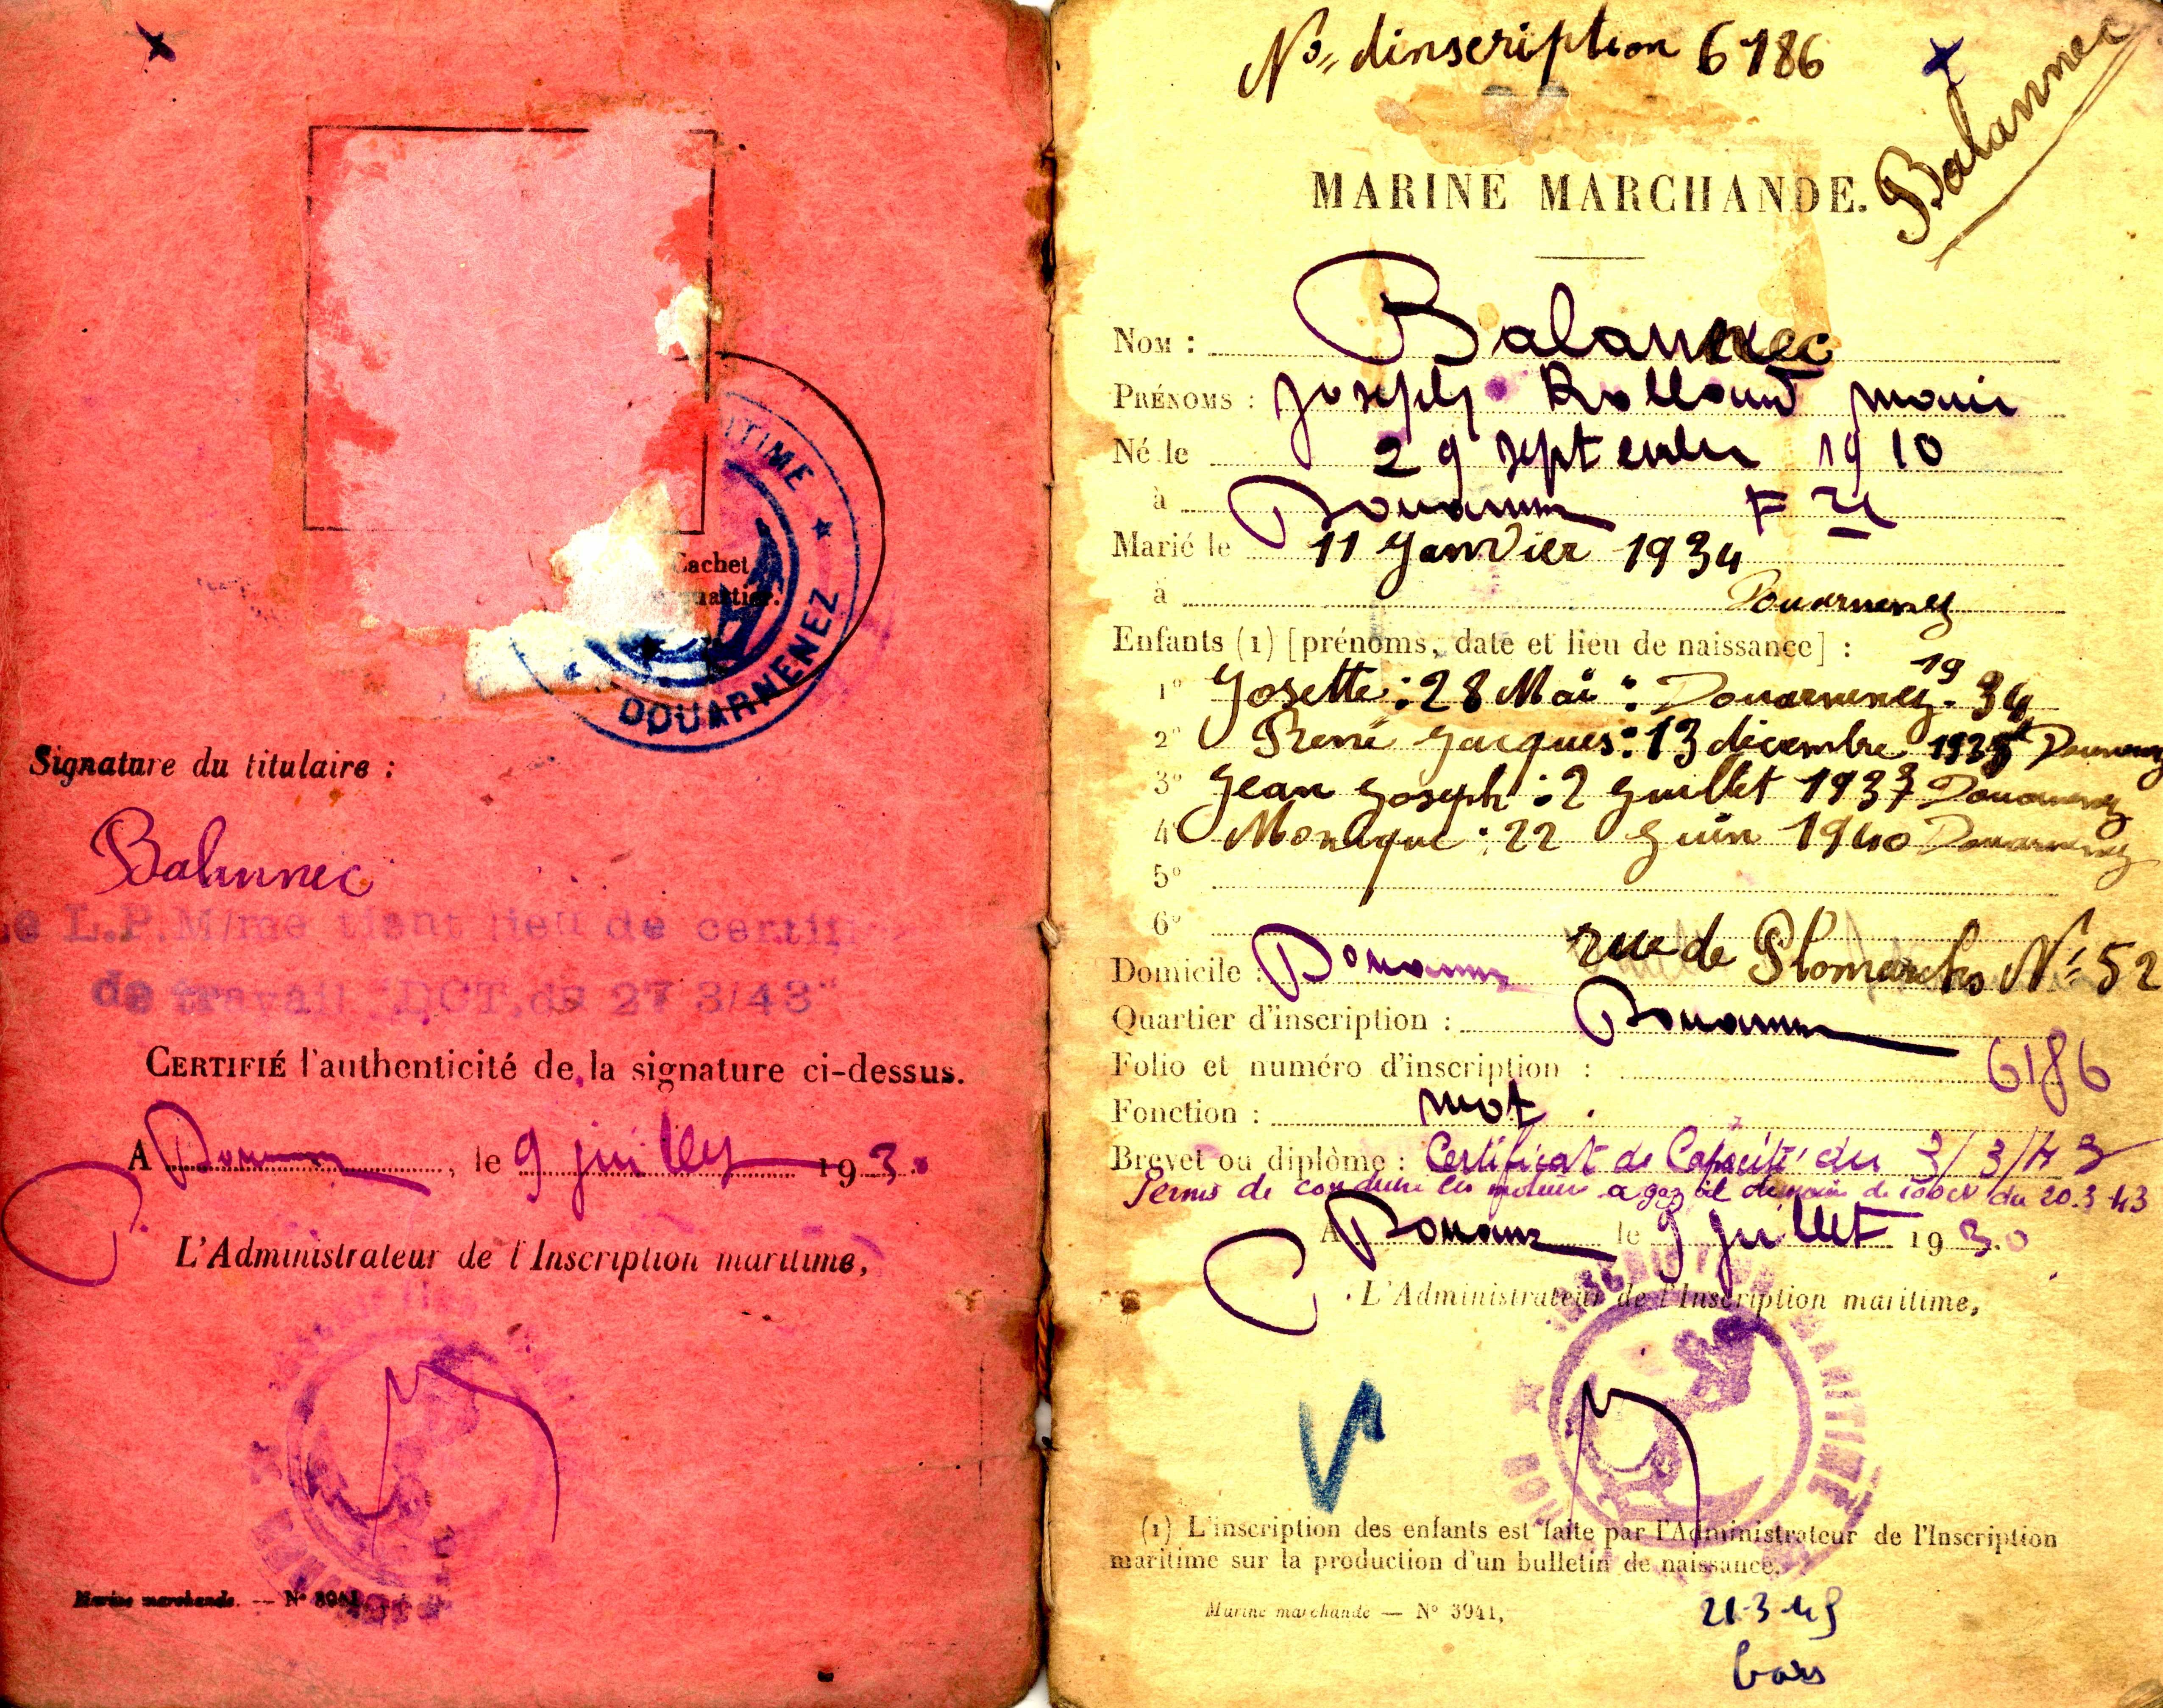 ITIME
DOUARNENEZ
Cachet
quartier.
Signature du titulaire :
Balannec
L.P.M/me tient lieu de certifi
de travail "DCT. de 27 3/43"
CERTIFIÉ l'authenticité de la signature ci-dessus.
A , le 9 juillet 193
L'Administrateur de l'Inscription maritime,
Marine marchande. — N° 3941.
No dinscription 6186
Balannec
MARINE MARCHANDE.
NOM : Balannec
PRÉNOMS : Joseph Rolland marie
Né le 29 septembre 1910
à Fre
Marié le 11 Janvier 1934
à Douarnenez
Enfants (1) [prénoms, date et lieu de naissance] :
1° Josette : 28 Mai : Douarnenez. 1934
2° René Jacques : 13 décembre 1935 Douarnenez
3° Jean Joseph : 2 Juillet 1937 Douarnenez
4° Monique : 22 Juin 1940 Douarnenez
5°
6°
Domicile : rue de Plomarchs N° 52
Quartier d'inscription :
Folio et numéro d'inscription : 6186
Fonction : mot.
Brevet ou diplôme : Certificat de Capacité du 3/3/43
Permis de conduire les moteurs a gaz oil de moins de 100cv du 20.3.43
A le 9 Juillet 1930
L'Administrateur de l'Inscription maritime,
INSCRIPTION MARITIME
(1) L'inscription des enfants est faite par l'Administrateur de l'Inscription
maritime sur la production d'un bulletin de naissance.
Marine marchande — N° 3941.
21-3-45